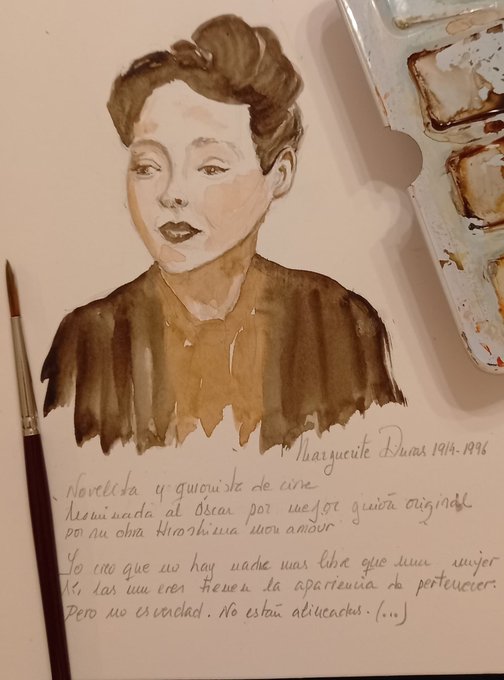 Marguerite Duras 1914-1996
Novelista y guionista de cine
Nominada al Óscar por mejor guión original
por su obra Hiroshima mon amour
Yo creo que no hay nadie mas libre que una mujer
Sí, las mujeres tienen la apariencia de pertenecer.
Pero no es verdad. No están alineadas. (...)